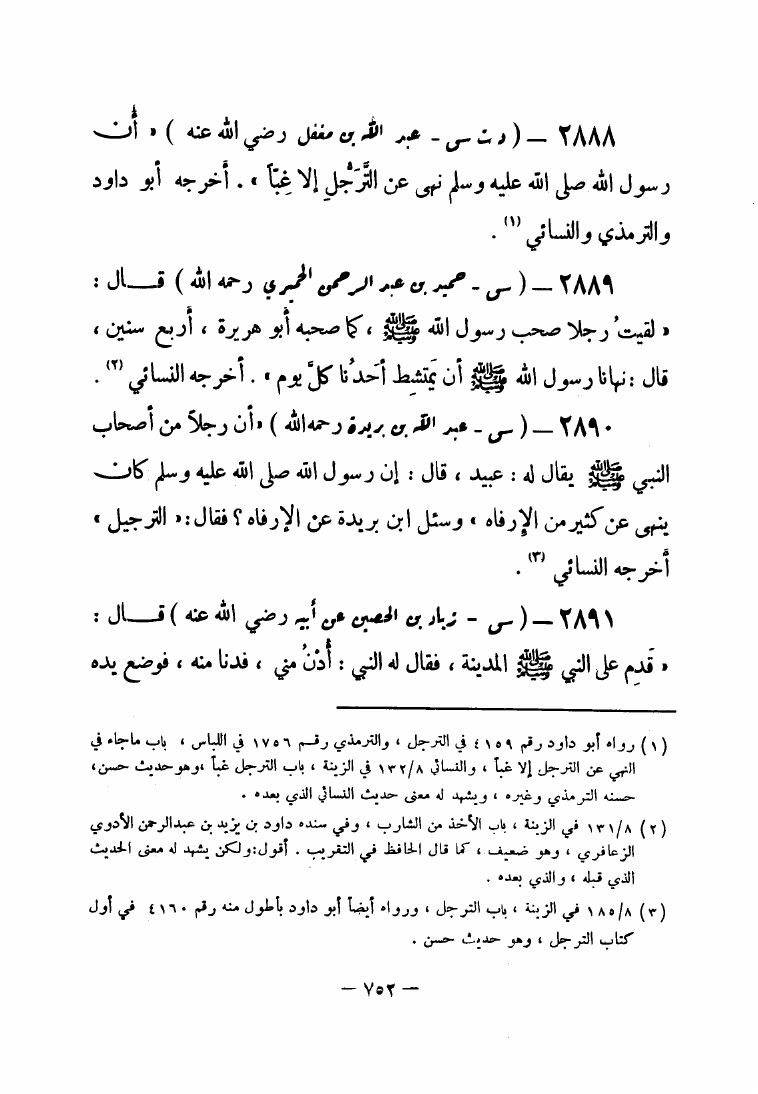 ٢٨٨٨ – ( د ت س - عبد الله بن مغفل رضي الله عنه ) « أُن
رسول الله صلى الله عليه وسلم نهى عن التَّرَجُّلِ إلا غِبّاً » . أخرجه أبو داود
والترمذي والنسائي (١) .
٢٨٨٩ – ( س - حميد بن عبد الرحمن الحميري رحمه الله ) قـــال :
« لقيتُ رجلا صحب رسول الله ﷺ ، كما صحبه أبو هريرة ، أربع سنين ،
قال : نهانا رسول الله ﷺ أن يَمتشِط أحَدُنا كلَّ يوم » . أخرجه النسائي (٢) .
٢٨٩٠ – ( س - عبد الله بن بريدة رحمه الله ) « أن رجلاً من أصحاب
النبي ﷺ يقال له : عبيد ، قال : إن رسول الله صلى الله عليه وسلم كان
ينهى عن كثير من الإرفاه » وسئل ابن بريدة عن الإرفاه ؟ فقال : « الترجيل »
أخرجه النسائي (٣) .
٢٨٩١ – ( س - زياد بن الحصين عن أبيه رضي الله عنه ) قـــال :
« قَدِم على النبي ﷺ المدينة ، فقال له النبي : أُدْنُ مني ، فدنا منه ، فوضع يده
(١) رواه أبو داود رقم ٤١٥٩ في الترجل ، والترمذي رقـم ١٧٥٦ في اللباس ، باب ماجاء في
النهي عن الترجل إلا غباً ، والنسائي ١٣٢/٨ في الزينة ، باب الترجل غباً ،وهو حديث حسن،
حسنه الترمذي وغيره ، ويشهد له معنى حديث النسائي الذي بعده .
(٢) ١٣١/٨ في الزينة ، باب الأخذ من الشارب ، وفي سنده داود بن يزيد بن عبدالرحمن الأدوي
الزعافري ، وهو ضعيف ، كما قال الحافظ في التقريب . أقول:ولكن يشهد له معنى الحديث
الذي قبله ، والذي بعده .
(٣) ١٨٥/٨ في الزينة ، باب الترجل ، ورواه أيضاً أبو داود بأطول منه رقم ٤١٦٠ في أول
كتاب الترجل ، وهو حديث حسن .
– ٧٥٢ –